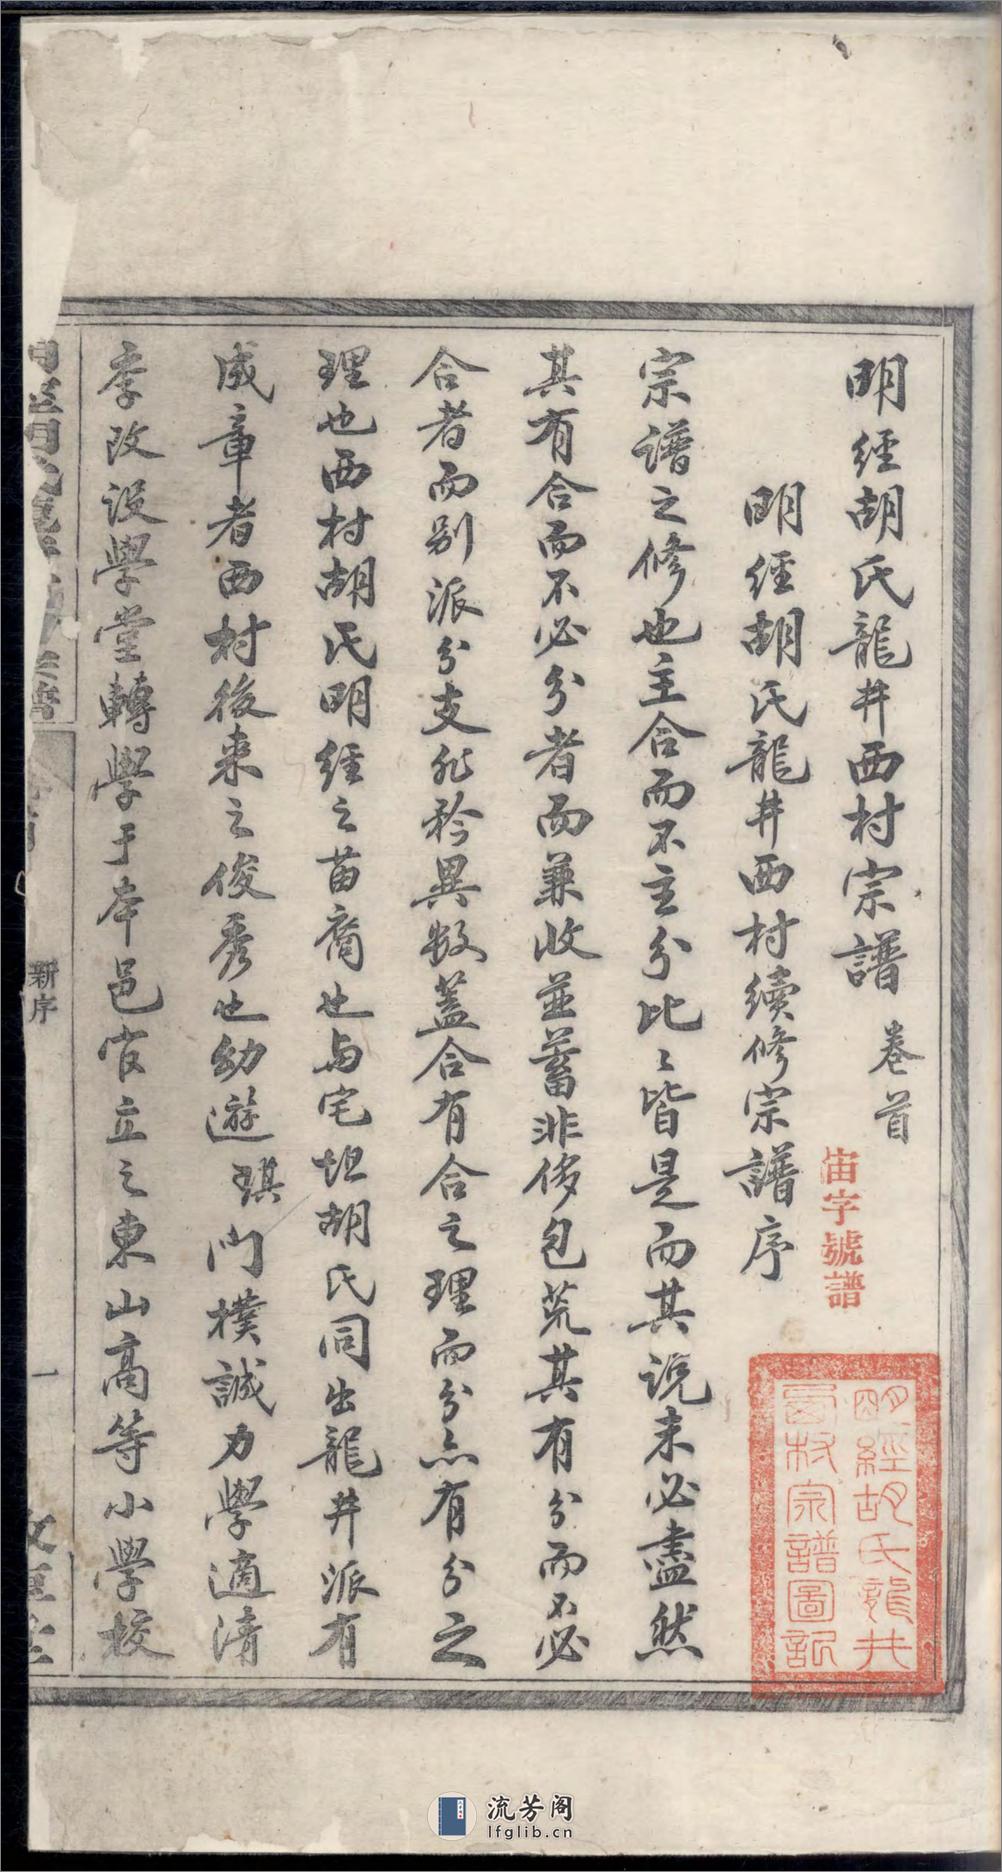 明經胡氏龍井西村宗譜 卷首
宙字號譜
明經胡氏龍井西村續修宗譜序
明經胡氏龍井
西村宗譜圖記
宗譜之修也主合而不主分比〻皆是而其說未必盡然
其有合而不必分者而兼收並蓄非侈包荒其有分而不必
合者而別派分支非矜異數蓋合有合之理而分亦有分之
理也西村胡氏明經之苗裔也与宅坦胡氏同出龍井派有
成章者西村後來之俊秀也幼遊琪門樸誠力學適清
季改設學堂轉學于本邑官立之東山高等小學校
新序
一
流芳阁
lfglib.cn